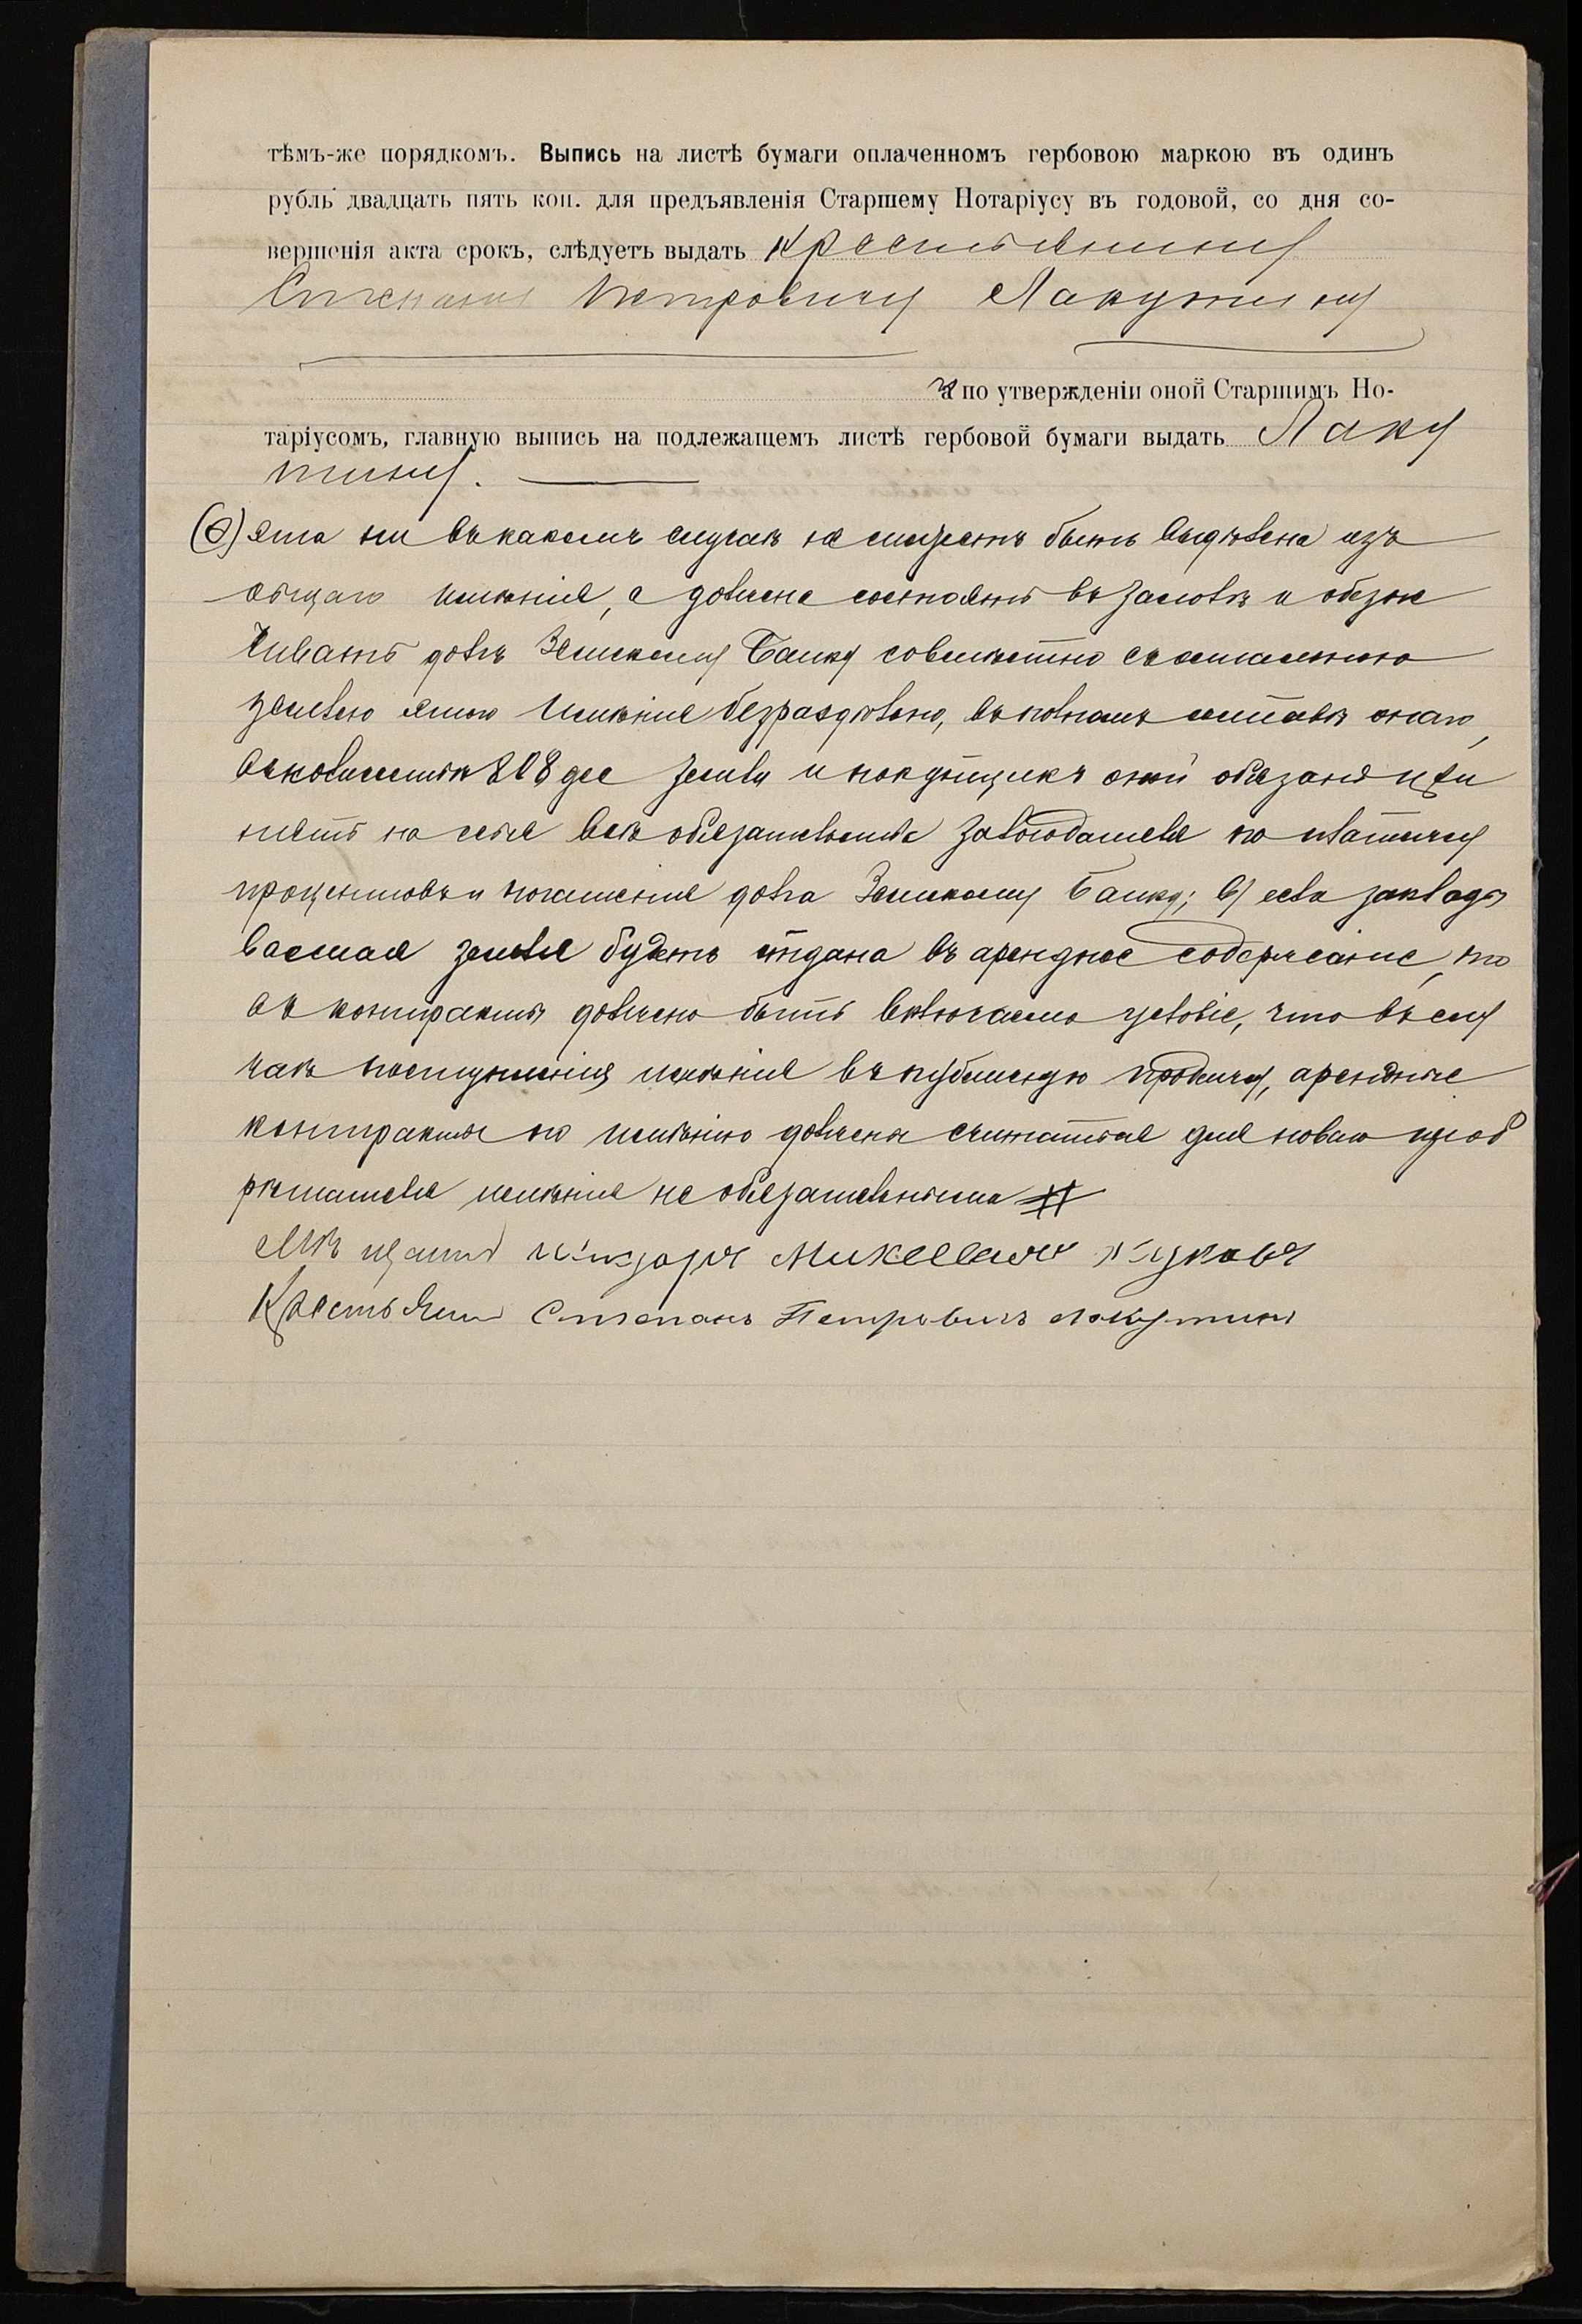 тѣмъ-же порядкомъ. Выпись на листѣ бумаги оплаченномъ гербовою маркою въ одинъ
рубль двадцать пять коп. для предъявленія Старшему Нотаріусу въ годовой, со дня со-
вершенія акта срокъ, слѣдуетъ выдать крестьянину
Степану Петровичу Лакутину
а по утвержденіи оной Старшимъ Но-
таріусомъ, главную выпись на подлежащемъ листѣ гербовой бумаги выдать Лаку
тину.
ни въ какомъ случаѣ не можетъ быть выдѣлена изъ
общаго имѣнія, а должна состоять въ залогѣ и обезпе
чивать долгъ Земскому Банку совмѣстно съ остальною
землею имѣнія безраздѣльно, въ полномъ составѣ онаго,
въ количествѣ 808 дес земли и покупщикъ оной обязанъ при
нять на себя всѣ обязательства залогодателя по платежу
процентовъ и погашенія долга Земскому Банку; в) если заклады
ваемая земля будетъ отдана въ арендное содержаніе, то
въ контрактъ должно быть включаемо условіе, что въ слу
чаѣ поступленія имѣнія въ публичную продажу, арендные
контракты по имѣнію должны считаться для новаго пріоб
рѣтателя имѣнія не обязательными
Мѣщанинъ
Крестьянинъ Степанъ Петровичъ Лакутинъ